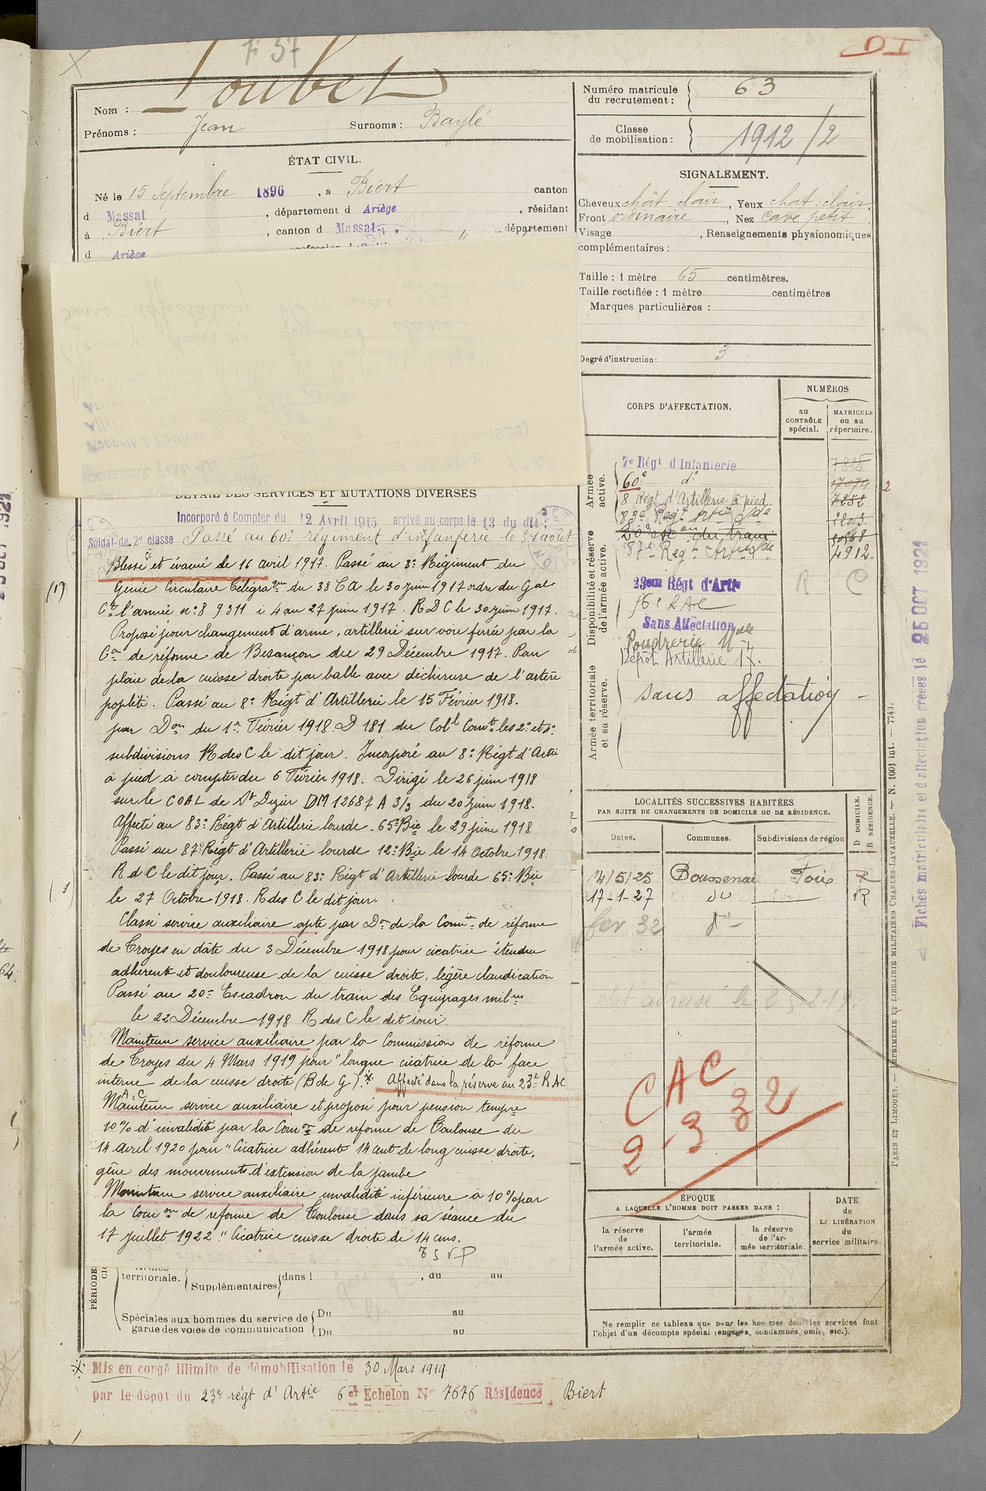 F 57
D I
Nom : Loubet
Prénoms : Jean Surnoms : Baylé
ÉTAT CIVIL.
Né le 15 Septembre 1896, à Biert canton
d Massat, département d Ariège, résidant
à Biert, canton d Massat, département
d Ariège
Numéro matricule du recrutement : 63
Classe de mobilisation : 1912/2
SIGNALEMENT.
Cheveux chât. clair, Yeux chat. clair.
Front ordinaire, Nez cave petit
Visage , Renseignements physionomiques
complémentaires :
Taille : 1 mètre 65 centimètres.
Taille rectifiée : 1 mètre centimètres
Marques particulières :
Degré d'instruction : 3
CORPS D'AFFECTATION.
NUMÉROS
au CONTRÔLE spécial.
MATRICULE ou au répertoire.
Armée active.
7e Régt d'Infanterie
60e d°
8 Régt d'Artillerie à pied
83e Reg
20e du train
87e Reg 4912.
Disponibilité et réserve de l'armée active.
23eme Régt d'Artie R C
16e RAC
Sans Affectation
Poudrerie Nale
Dépot Artillerie 17.
Armée territoriale et sa réserve.
sans affectation
DÉTAIL DES SERVICES ET MUTATIONS DIVERSES
Incorporé à Compter du 12 Avril 1915 arrivé au corps le 13 du dit ;
Soldat de 2e classe Passé au 60e régiment d'infanterie le 31 août
Blessé et évacué de 16 avril 1917. Passé au 8e Régiment du
Génie Circulaire Télégraque du 38 CA le 30 juin 1917 ordre du Gal
Ct l'armée n° 8 9311 i 4 au 27 juin 1917. R D C le 30 juin 1917.
Proposé pour changement d'arme, artillerie sur voie ferrée par la
Con de réforme de Besançon du 29 Décembre 1917. Pour
plaie de la cuisse droite par balle avec déchirure de l'artère
poplité. Passé au 8e Régt d'Artillerie le 15 Février 1918.
par Don du 1er Février 1918 D 181 du Coll Comt les 2e et 5e
subdivisions R des C le dit jour. Incorporé au 8e Régt d'Artie
à pied à compter du 6 Février 1918. Dirigé le 26 juin 1918
sur le COAL de St Dizier DM 12687 A 3/3 du 20 Juin 1918.
Affecté au 83e Régt d'Artillerie lourde. 65e Bie le 29 juin 1918
Passé au 87e Régt d'Artillerie lourde 12e Bie le 14 Octobre 1918.
R d C le dit jour. Passé au 83e Régt d'Artillerie lourde 65e Bie
le 27 Octobre 1918. R des C le dit jour.
Classé service auxiliaire apte par Don de la Comon de réforme
de Troyes en date du 3 Décembre 1918 pour cicatrice étendue
adhérente et douloureuse de la cuisse droite, légère claudication
Passé au 20e Escadron du train des Equipages milres
le 22 Décembre 1918 R des C le dit jour
Maintenu service auxiliaire par la Commission de réforme
de Troyes du 4 Mars 1919 pour "longue cicatrice de la face
interne de la cuisse droite (B de G). x Affecté dans la réserve au 23e R AC
Maintenu service auxiliaire et proposé pour pension tempre
10% d'invalidité par la Comon de réforme de Toulouse du
14 avril 1920 pour "Cicatrice adhérente 14 cent de long cuisse droite,
gêne des mouvements d'extension de la jambe
Maintenu service auxiliaire invalidité inférieure à 10% par
la Comon de réforme de Toulouse dans sa séance du
17 juillet 1922 "Cicatrice cuisse droite de 14 cms.
T S V P
territoriale. Supplémentaires dans l , du au
Spéciales aux hommes du service de garde des voies de communication Du au
Du au
LOCALITÉS SUCCESSIVES HABITÉES
PAR SUITE DE CHANGEMENTS DE DOMICILE OU DE RÉSIDENCE.
Dates. Communes. Subdivisions de région D DOMICILE. R RÉSIDENCE.
14/5/25 Boussenac Foix R
17-1-27 d° R
fev 32 d°
CAC
2 3 32
ÉPOQUE
A LAQUELLE L'HOMME DOIT PASSER DANS :
la réserve de l'armée active.
l'armée territoriale.
la réserve de l'armée territoriale.
DATE de LA LIBÉRATION du service militaire.
Ne remplir ce tableau que pour les hommes dont les services font
l'objet d'un décompte spécial (engagés, condamnés, omis, etc.).
x Mis en congé illimité de démobilisation le 30 Mars 1919
par le dépot du 23e régt d'Artie 6 et Echelon No 7676 Résidence, Biert
Fiches matriculaire et d'affectation creees le 25 OCT 1921
PARIS ET LIMOGES. — IMPRIMERIE ET LIBRAIRIE MILITAIRES CHARLES-LAVAUZELLE. — N. 1001 int. — 7743.